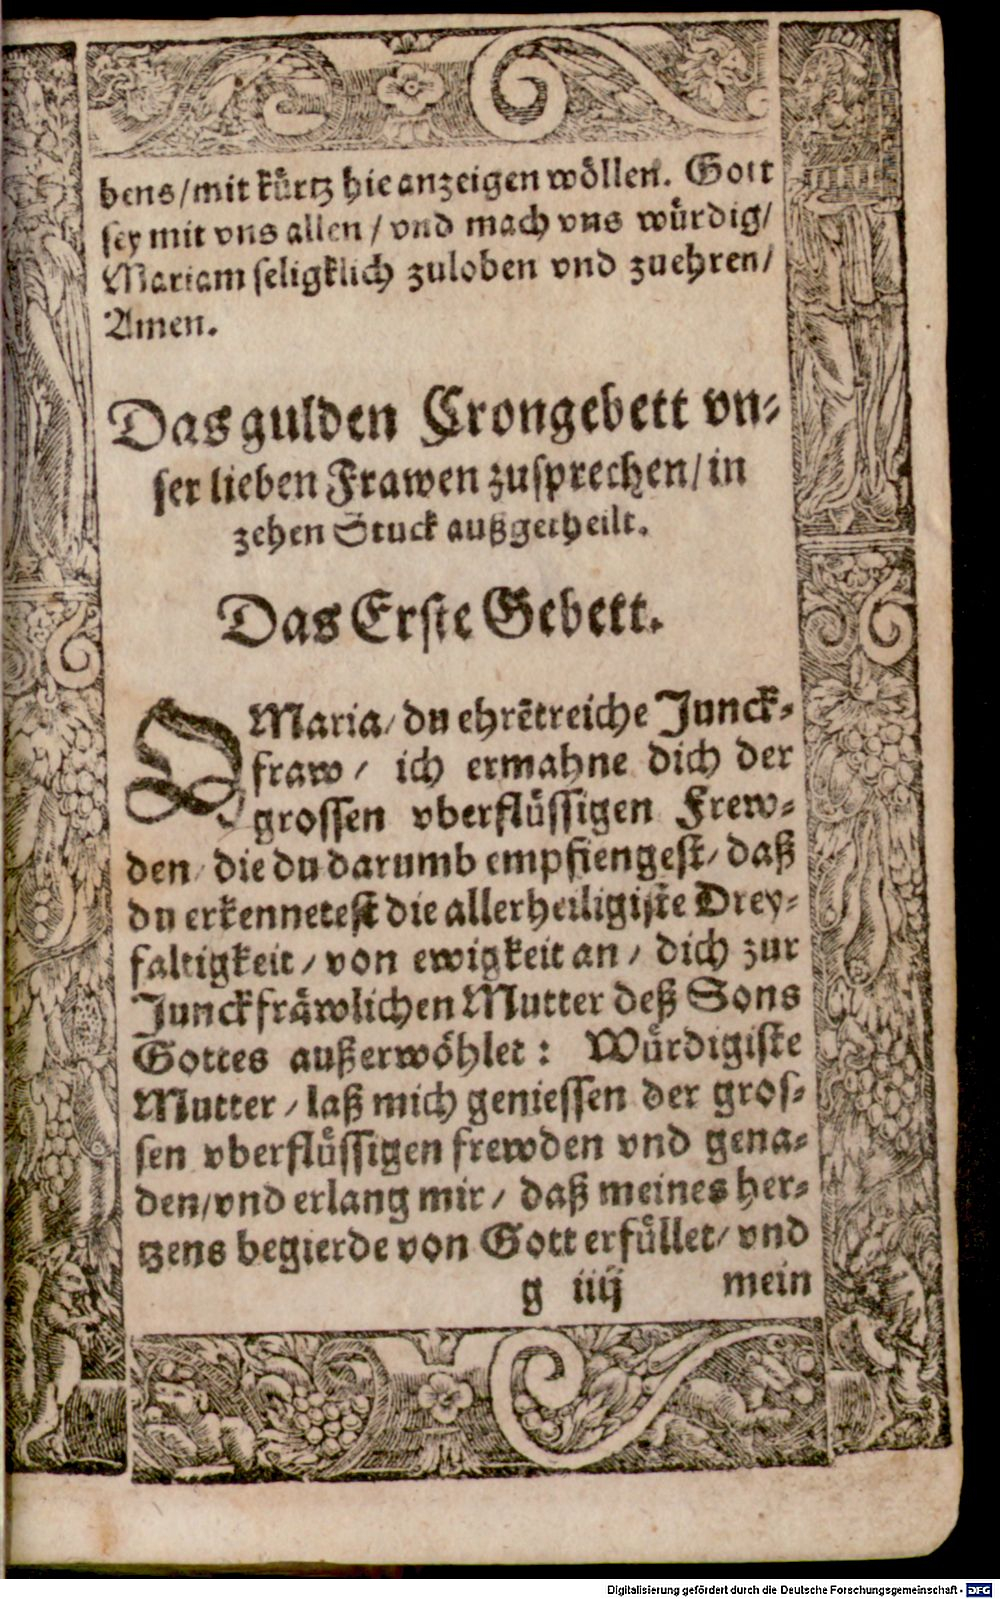 bens/mit kürtz hie anzeigen wöllen. Gott
sey mit vns allen / vnd mach vns würdig/
Mariam seligklich zuloben vnd zuehren/
Amen.
Das gulden Crongebett vn-
ser lieben Frawen zusprechen/ in
zehen Stuck außgetheilt.
Das Erste Gebett.
O Maria/ du ehrētreiche Junck-
fraw / ich ermahne dich der
grossen vberflüssigen Frew-
den/ die du darumb empfiengest/ daß
du erkennetest die allerheiligiste Drey-
faltigkeit / von ewigkeit an / dich zur
Junckfräwlichen Mutter deß Sons
Gottes außerwöhlet : Würdigiste
Mutter / laß mich geniessen der gros-
sen vberflüssigen frewden vnd gena-
den/vnd erlang mir / daß meines her-
tzens begierde von Gott erfüllet/ vnd
g iiij mein
Digitalisierung gefördert durch die Deutsche Forschungsgemeinschaft - DFG